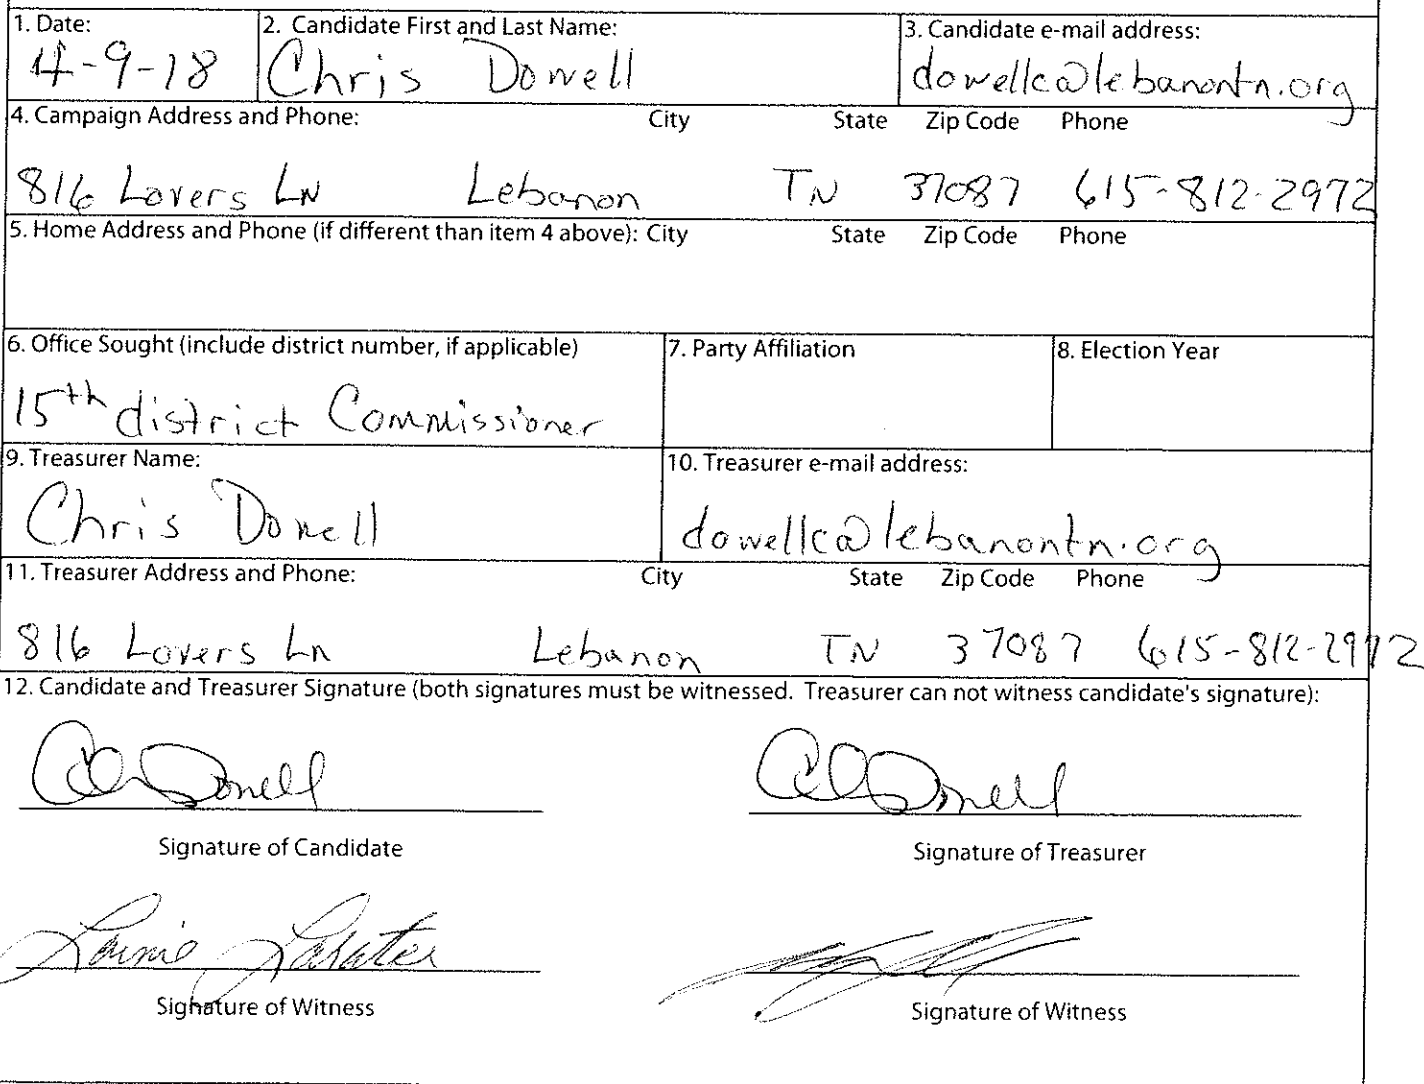 1. Date: 2. Candidate First and Last Name: 3. Candidate e-mail address:
4-9-18 Chris Dowell dowellc@lebanontn.org
4. Campaign Address and Phone: City State Zip Code Phone
816 Lovers LN Lebanon TN 37087 615-812-2972
5. Home Address and Phone (if different than item 4 above): City State Zip Code Phone
6. Office Sought (include district number, if applicable) 7. Party Affiliation 8. Election Year
15th district Commissioner
9. Treasurer Name: 10. Treasurer e-mail address:
Chris Dowell dowellc@lebanontn.org
11. Treasurer Address and Phone: City State Zip Code Phone
816 Lovers Ln Lebanon TN 37087 615-812-2972
12. Candidate and Treasurer Signature (both signatures must be witnessed. Treasurer can not witness candidate's signature):
Signature of Candidate Signature of Treasurer
Signature of Witness Signature of Witness